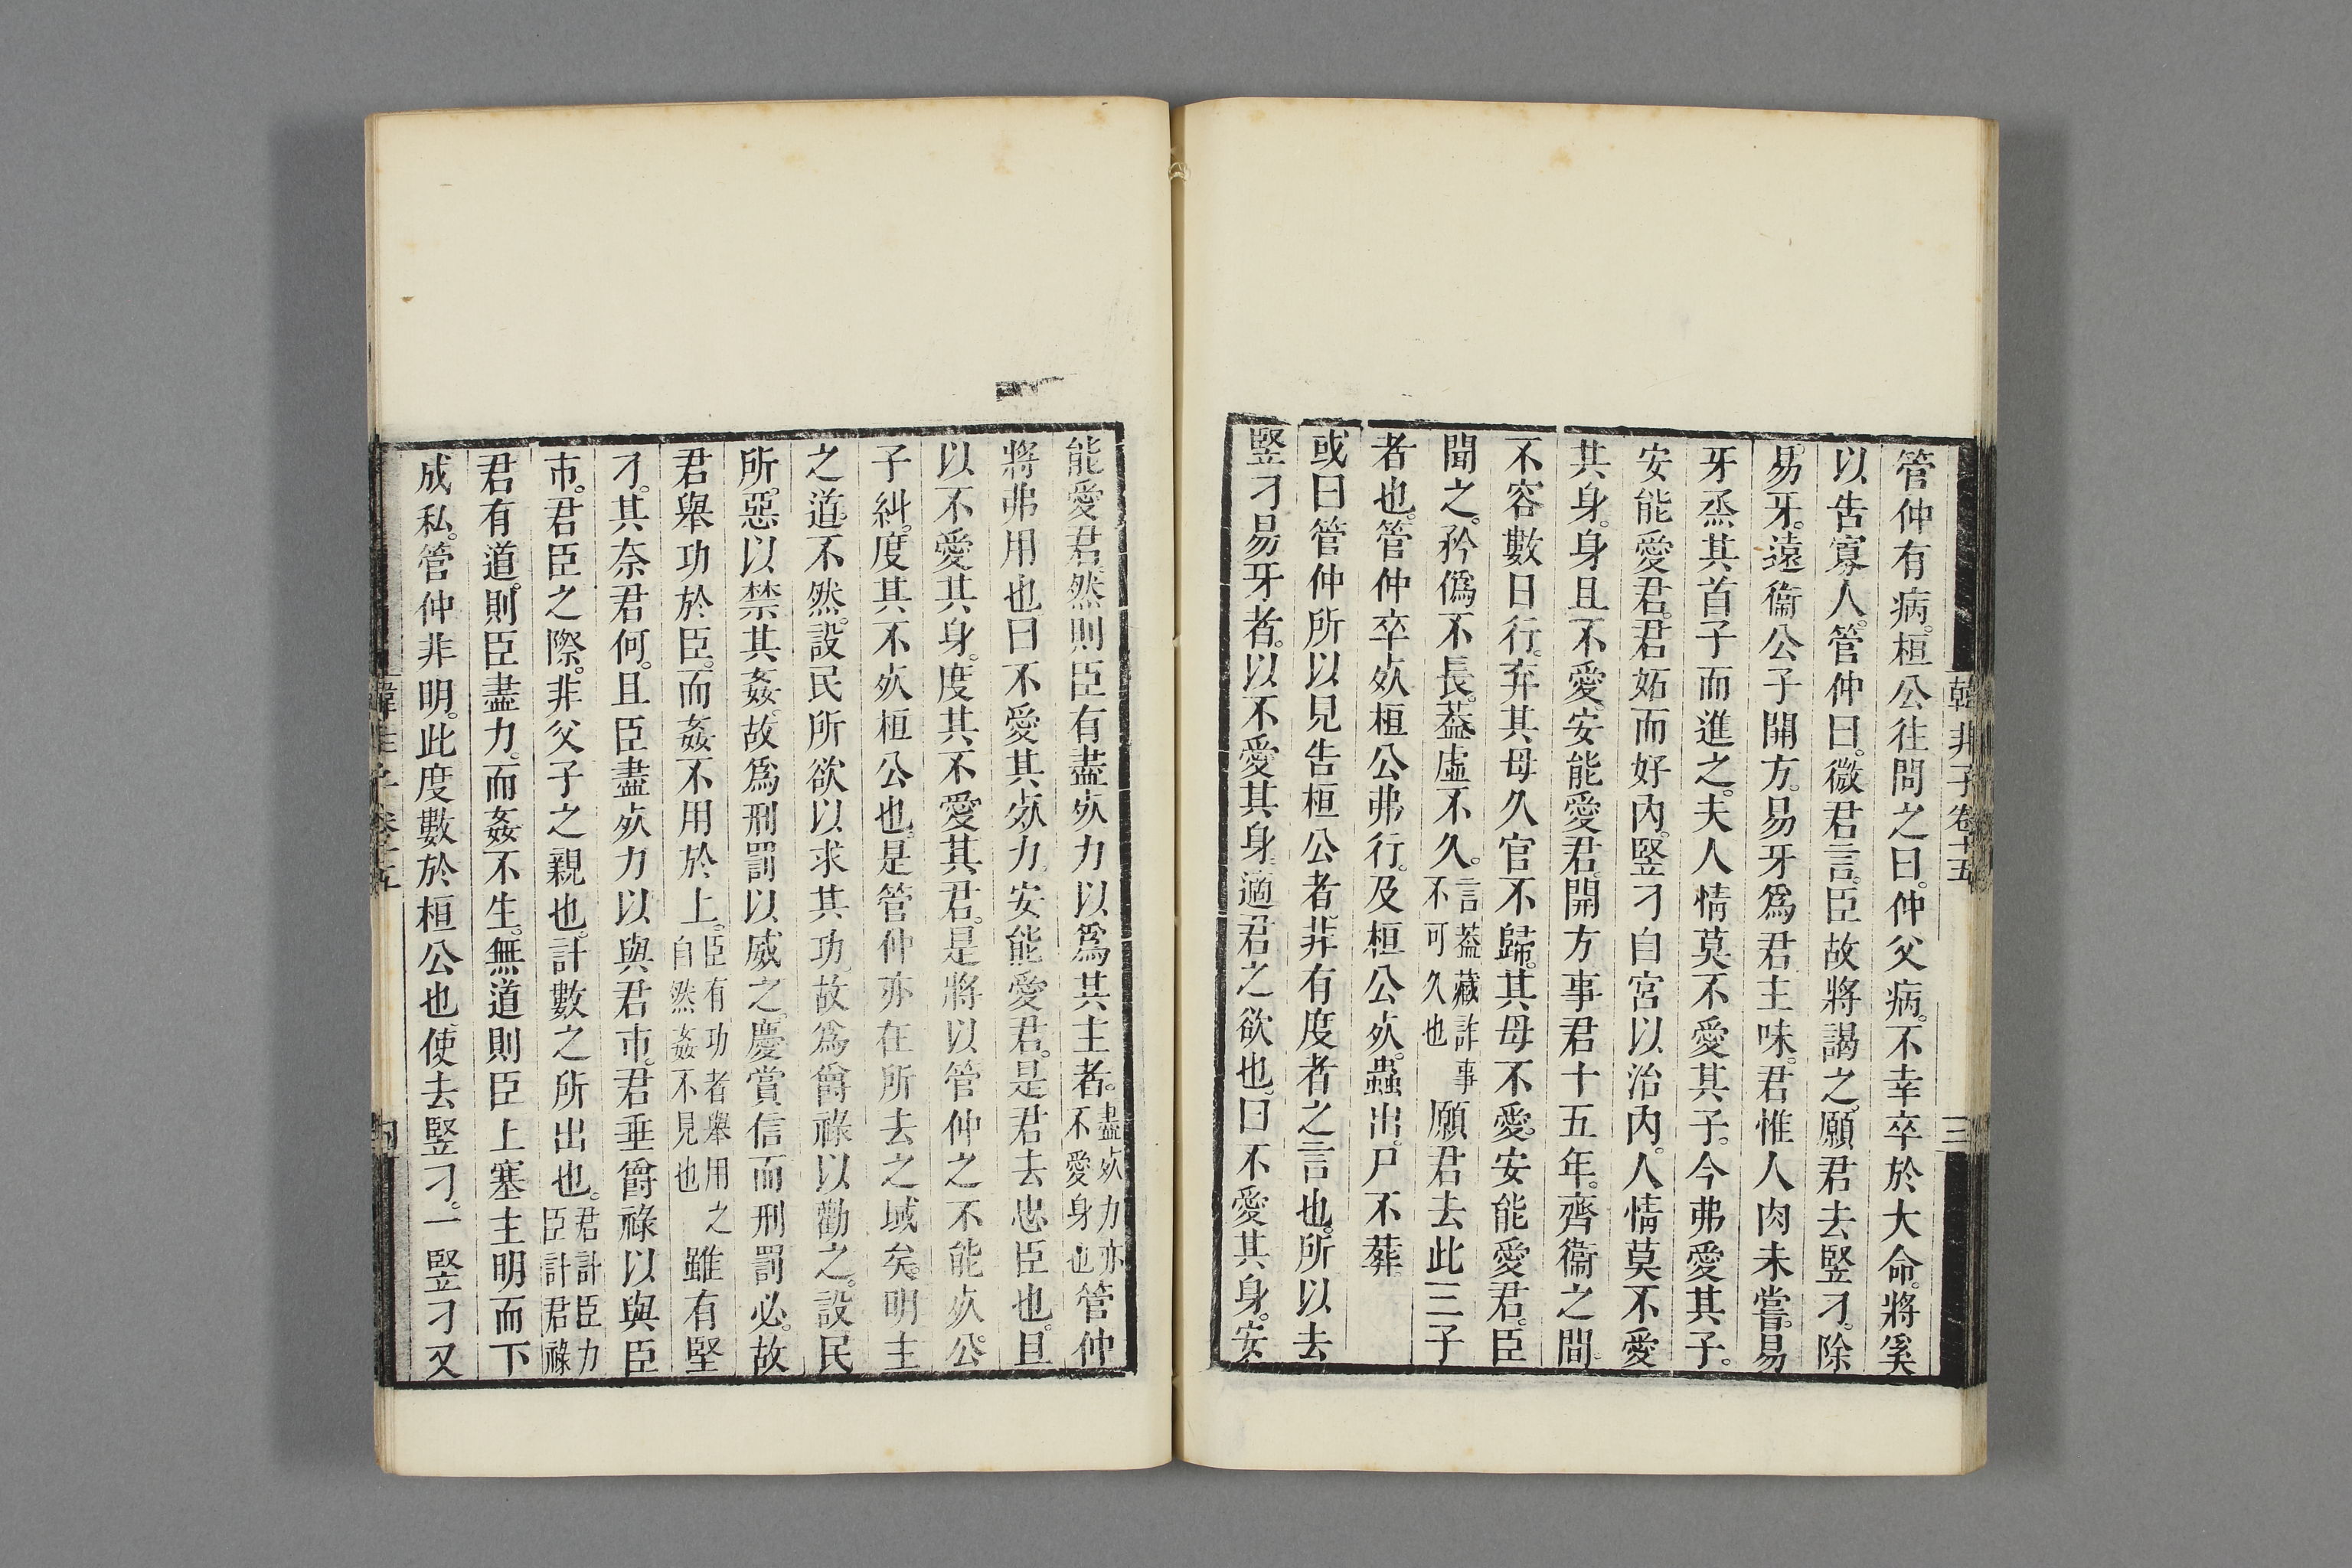 韓非子卷十五
三
管仲有病。桓公往問之曰。仲父病。不幸卒於大命。將奚
以告寡人。管仲曰。微君言。臣故將謁之。願君去豎刁。除
易牙。遠衞公子開方。易牙爲君主味。君惟人肉未嘗。易
牙烝其首子而進之。夫人情莫不愛其子。今弗愛其子。
安能愛君。君妬而好內。豎刁自宮以治內。人情莫不愛
其身。身且不愛。安能愛君。開方事君十五年。齊衞之間。
不容數日行。弃其母久官不歸。其母不愛。安能愛君。臣
聞之。矜僞不長。葢虛不久。言葢藏詐事不可久也願君去此三子
者也。管仲卒㱙桓公弗行。及桓公㱙。蟲出。尸不葬。
或曰管仲所以見告桓公者。非有度者之言也。所以去
豎刁易牙者。以不愛其身。適君之欲也。曰不愛其身。安
能愛君。然則臣有盡㱙力以爲其主者。盡㱙力亦不愛身也管仲
將弗用也曰不愛其㱙力。安能愛君。是君去忠臣也。且
以不愛其身。度其不愛其君。是將以管仲之不能㱙公。
子糾。度其不㱙桓公也。是管仲亦在所去之域矣。明主
之道。不然。設民所欲以求其功。故爲爵祿以勸之。設民
所。惡以禁其姦。故爲刑罰以威之。慶賞信而刑罰必。故
君舉功於臣。而姦不用於上。臣有功者舉用之自然姦不見也雖有豎
刁。其奈君何。且臣盡㱙力以與君市。君垂爵祿以與臣
市。君臣之際。非父子之親也。計數之所出也。君計臣力臣計君祿
君有道。則臣盡力。而姦不生。無道則臣上塞主明而下
成私。管仲非明。此度數於桓公也使去豎刁。一豎刁又
韓非子卷十五
四